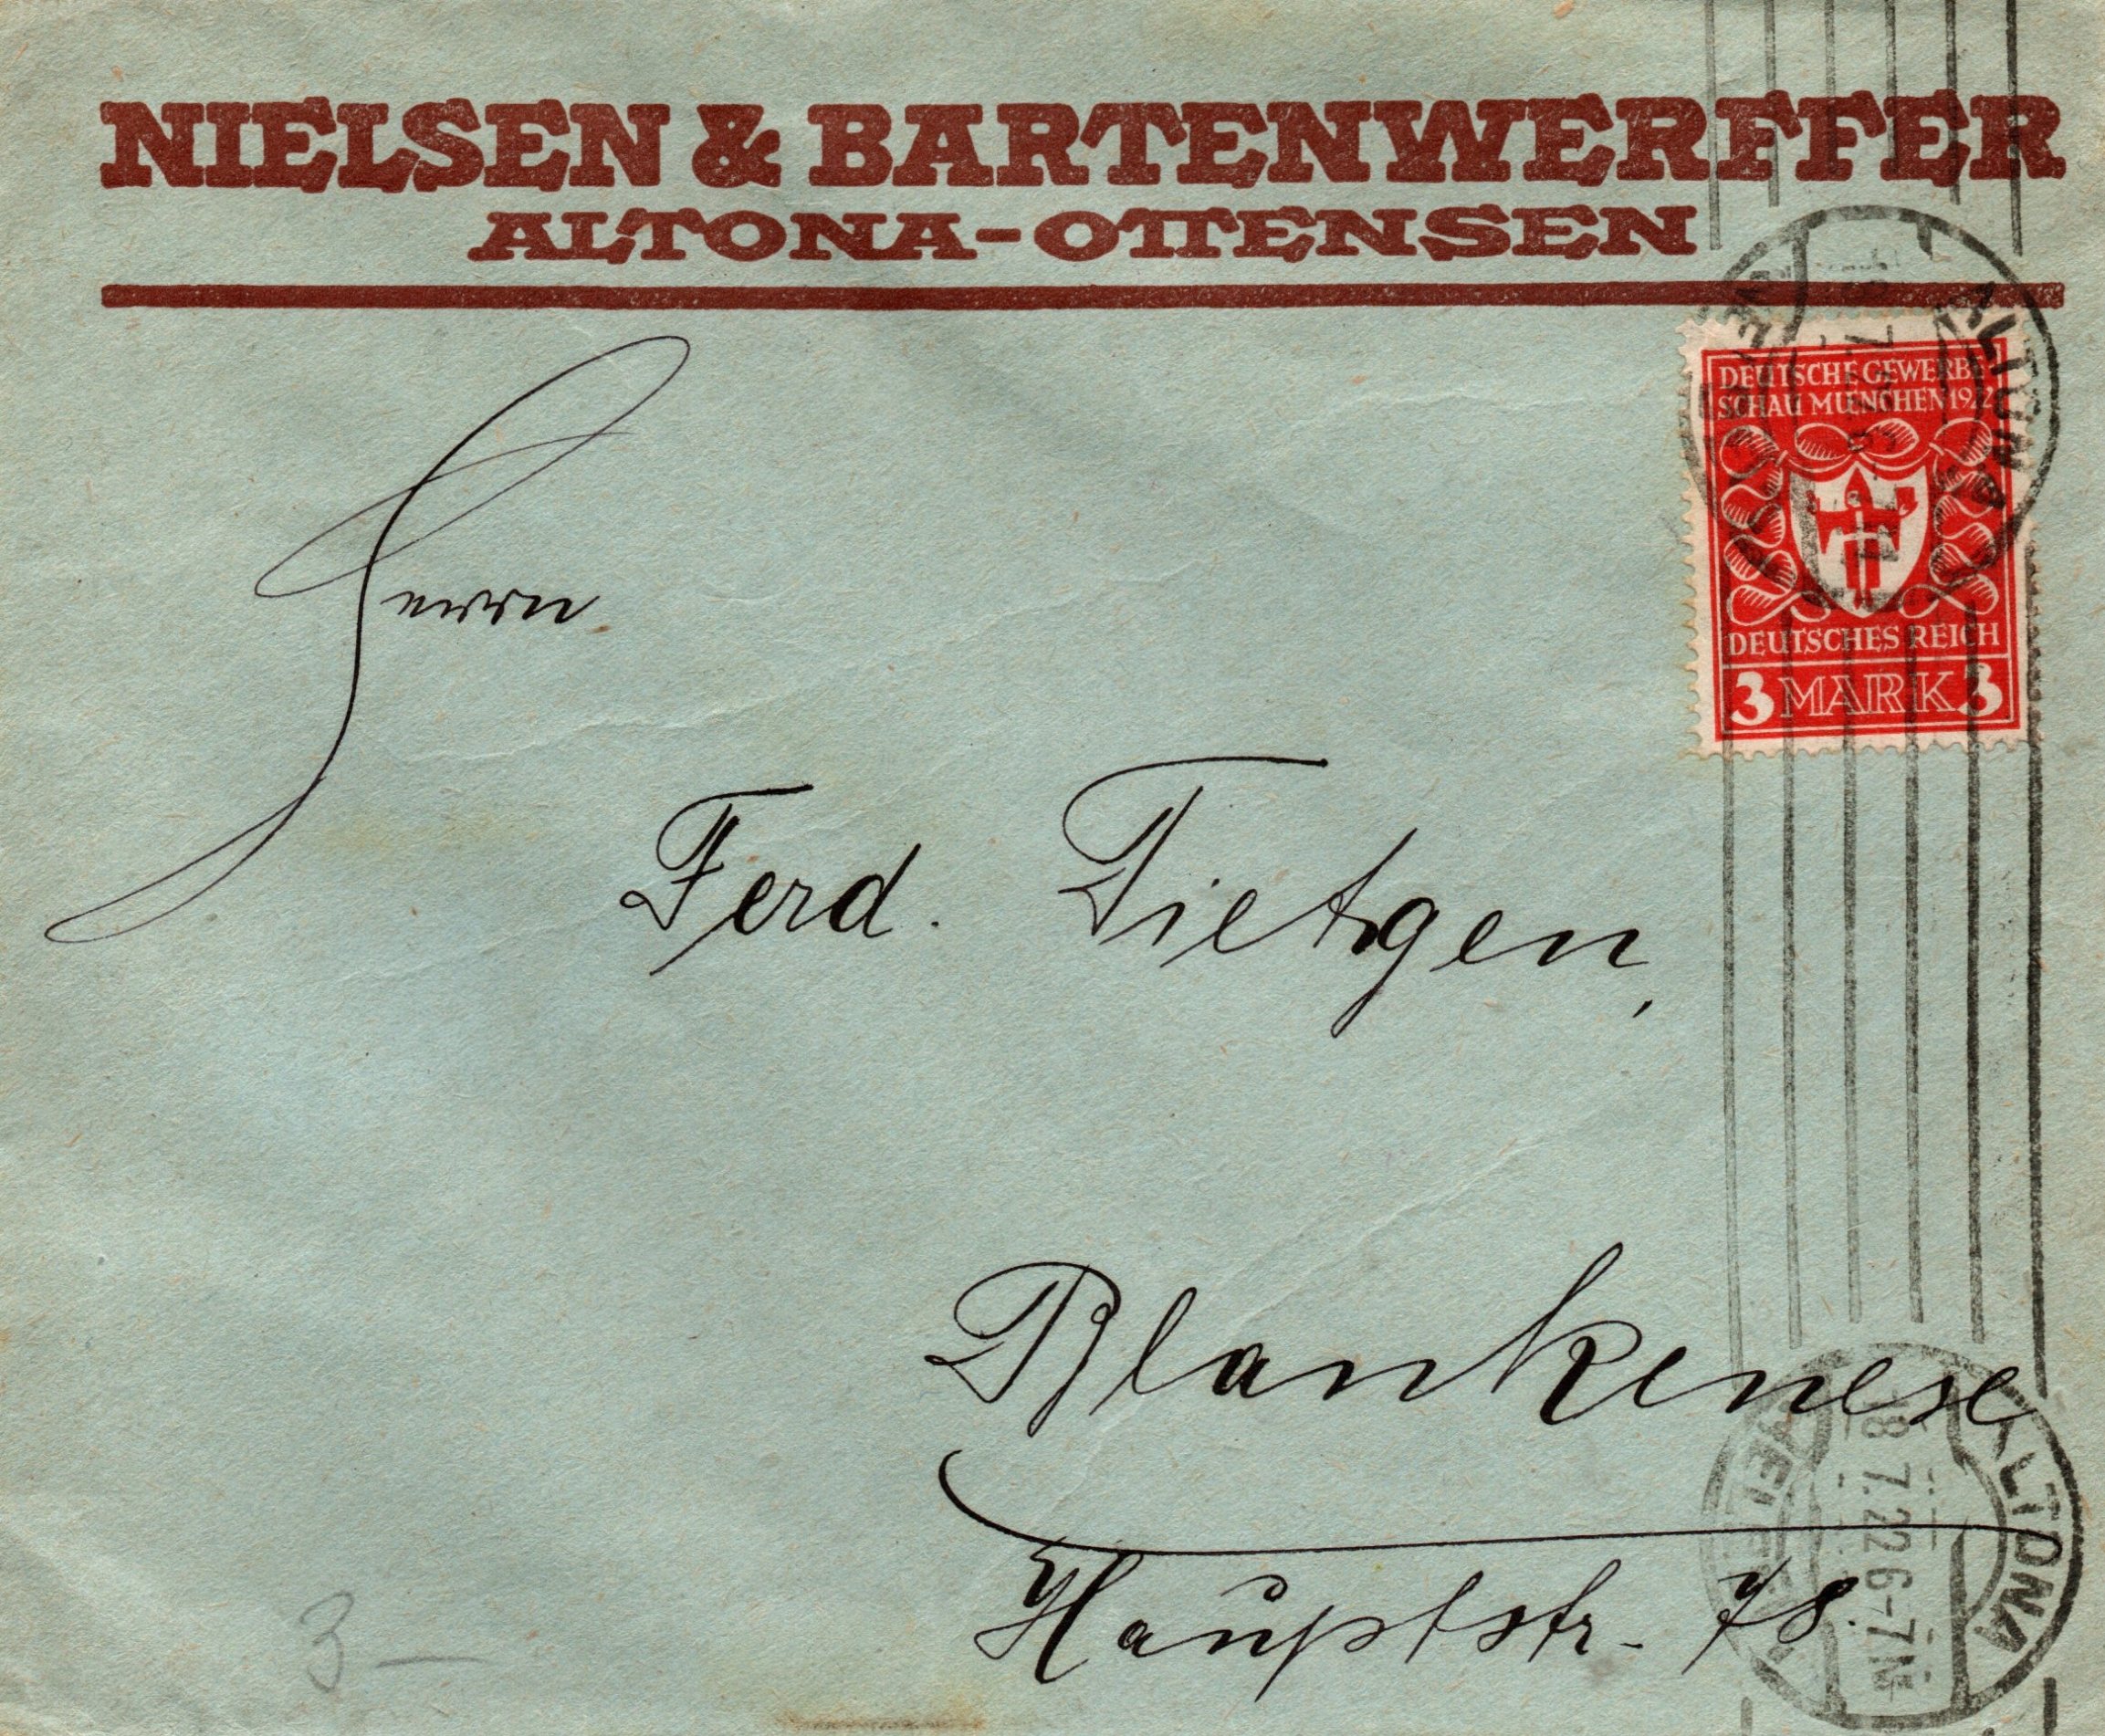 NIELSEN & BARTENWERFFER
ALTONA-OTTENSEN
DEUTSCHE GEWERBE
SCHAU MUENCHEN 1922
DEUTSCHES REICH
3 MARK 3
ALTONA
Herrn
Ferd. Tietgen,
Blankenese
Hauptstr. 78.
ALTONA
18.7.22 6-7N
3 —